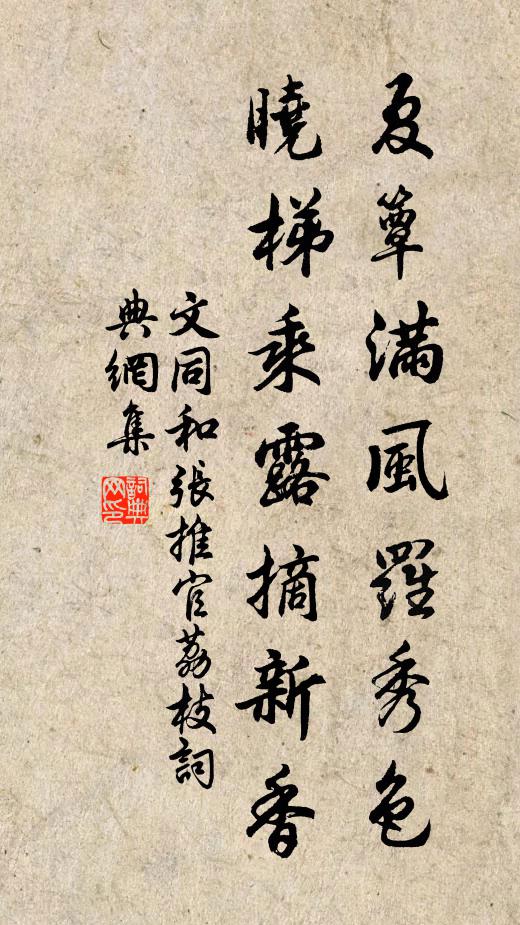 夏簟滿風羅秀色
曉梯乘露摘新香
文同和張推官荔枝詞
典網集
詞典網印